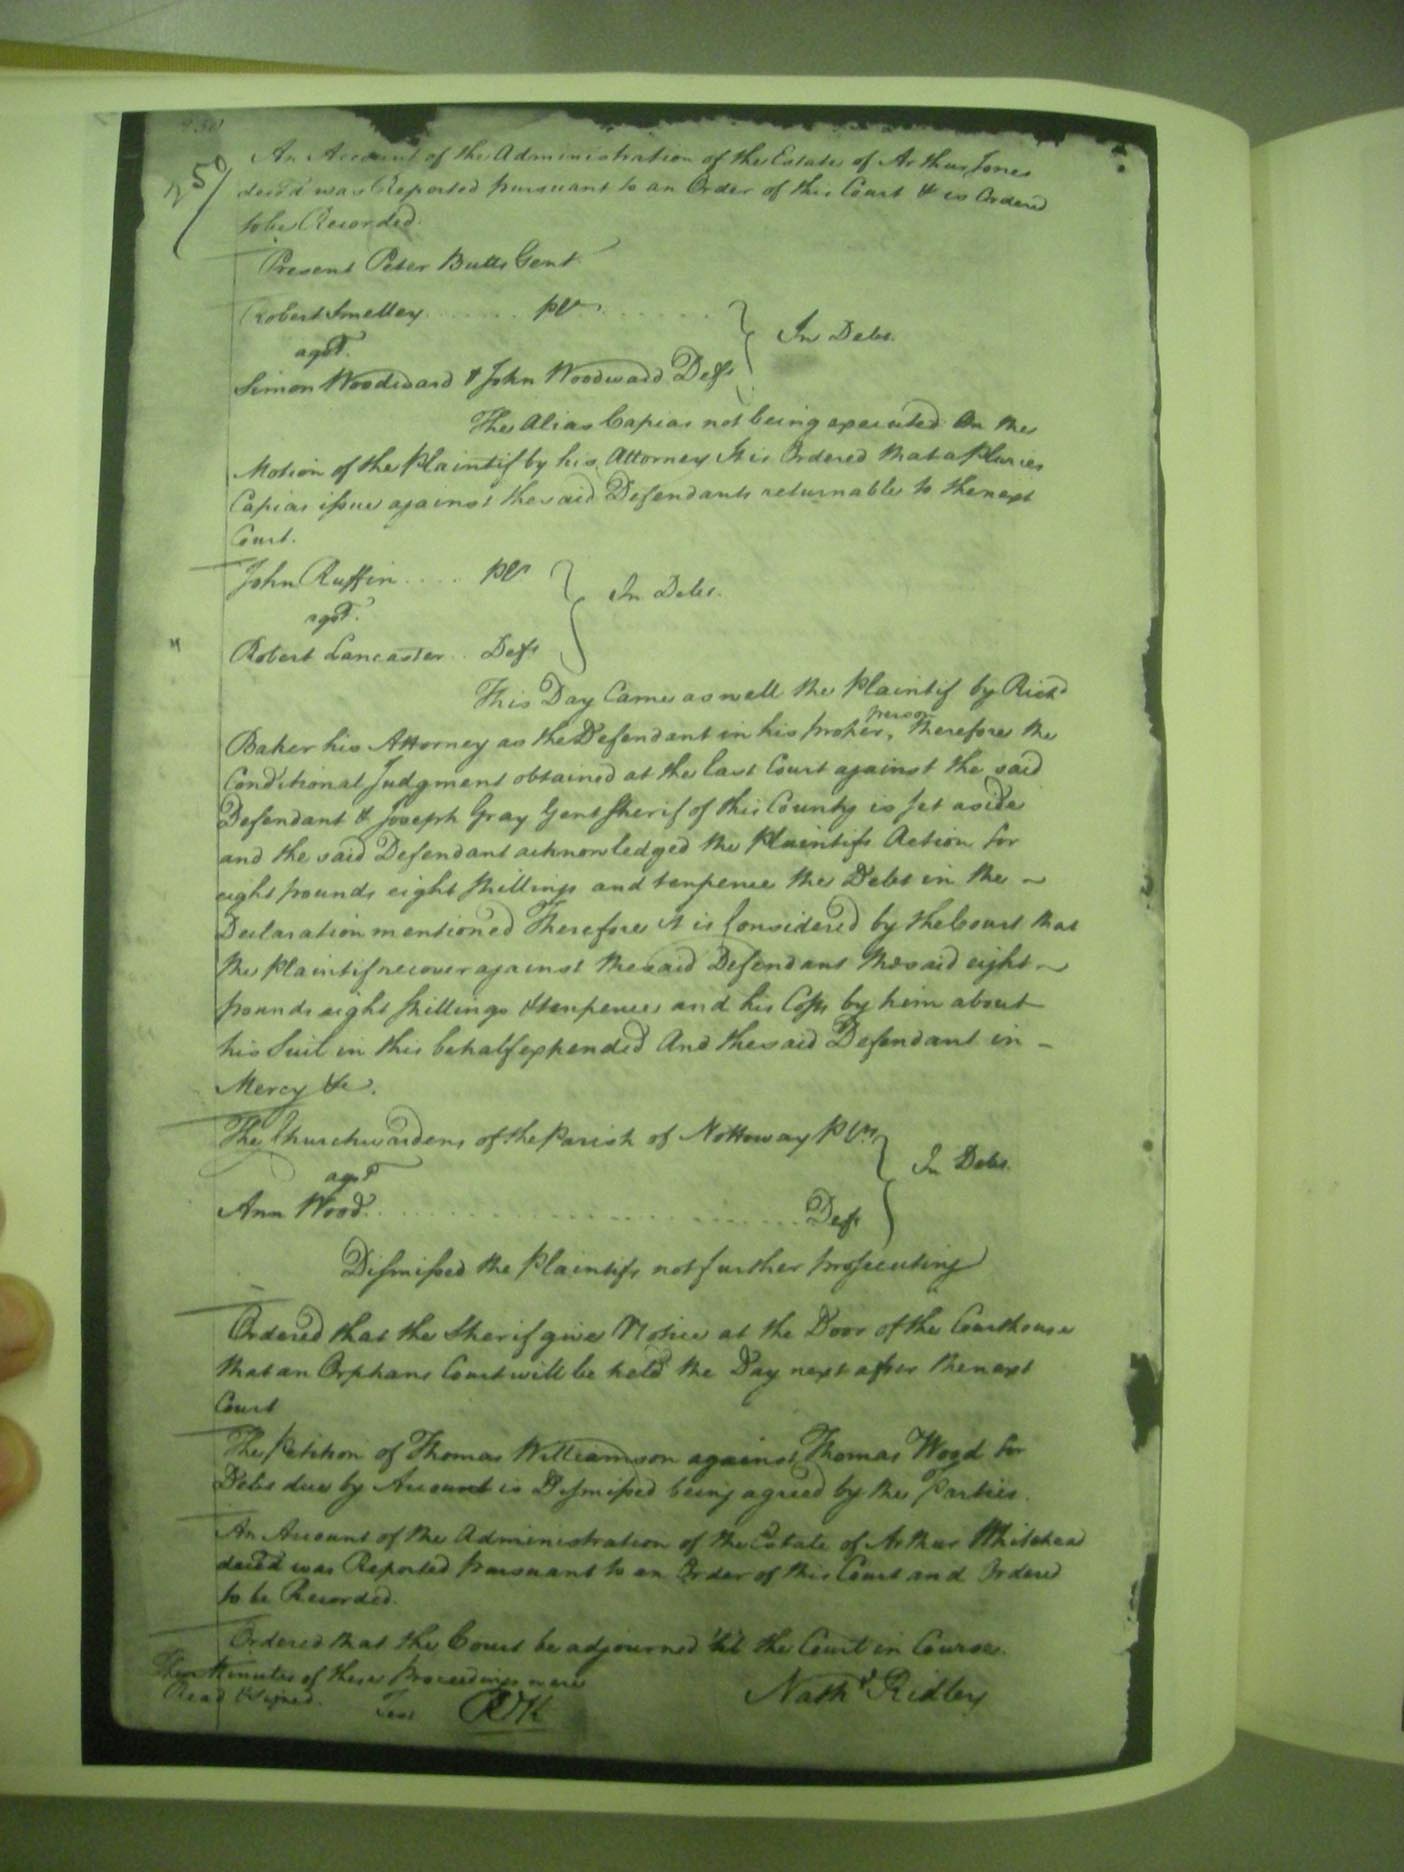 250
An Account of the Administration of the Estate of Arthur Jones
deced was Reported pursuant to an Order of this Court & is Ordered
to be Recorded.
Present Peter Butts Gent.
Robert Smelley ...... plt. ......
agst.
Simon Woodward & John Woodward Defts
In Debt.
The Alias Capias not being executed On the
Motion of the Plaintif by his Attorney It is Ordered that a Pluries
Capias issue against the said Defendants returnable to the next
Court.
John Ruffin .... plt
agst.
Robert Lancaster .. Deft
In Debt.
This Day Came as well the Plaintif by Richd
Baker his Attorney as the Defendant in his proper person, therefore the
Conditional Judgment obtained at the last Court against the said
Defendant & Joseph Gray Gent Sherif of this County is set aside
and the said Defendant acknowledged the Plaintifs Action for
eight pounds eight Shillings and tenpence the Debt in the
Declaration mentioned Therefore it is Considered by the Court that
the Plaintif recover against the said Defendant the said eight
pounds eight shillings & tenpence and his Costs by him about
his Suit in this behalf expended And the said Defendant in
Mercy &c.
The Churchwardens of the Parish of Nottoway plts
agst
Ann Wood .................... Deft
In Debt.
Dismissed the Plaintifs not further prosecuting
Ordered that the Sherif give Notice at the Door of the Courthouse
that an Orphans Court will be held the Day next after the next
Court
The Petition of Thomas Williamson against Thomas Wood for
Debt due by Account is Dismissed being agreed by the Parties.
An Account of the Administration of the Estate of Arthur Whitehead
deced was Reported pursuant to an Order of this Court and Ordered
to be Recorded.
Ordered that the Court be adjourned 'til the Court in Course.
Then Minutes of these Proceedings were
Read & Signed.
Test
Nathl Ridley